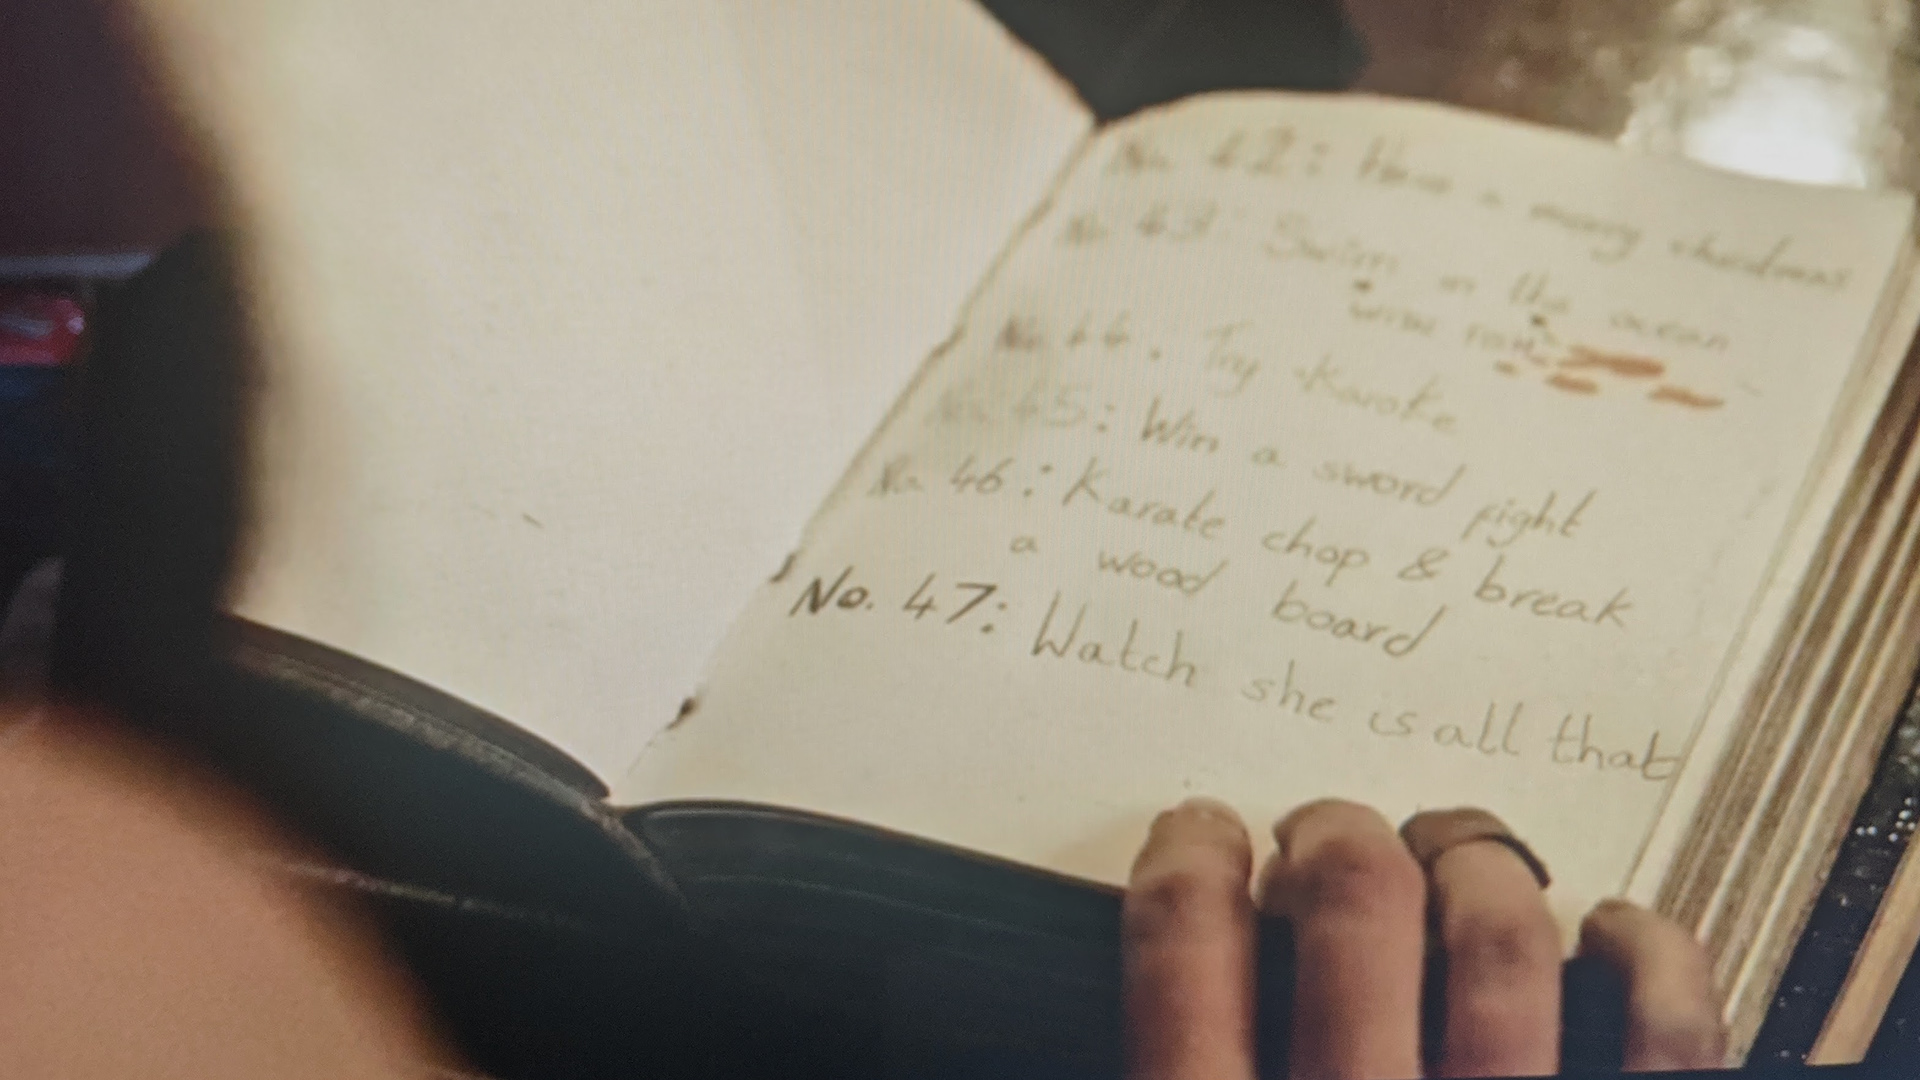 No. 42: Have a merry christmas
No. 43: Swim in the ocean
with
No. 44. Try Karoke
No. 45: Win a sword fight
No. 46: Karate chop & break
a wood board
No. 47: Watch she is all that